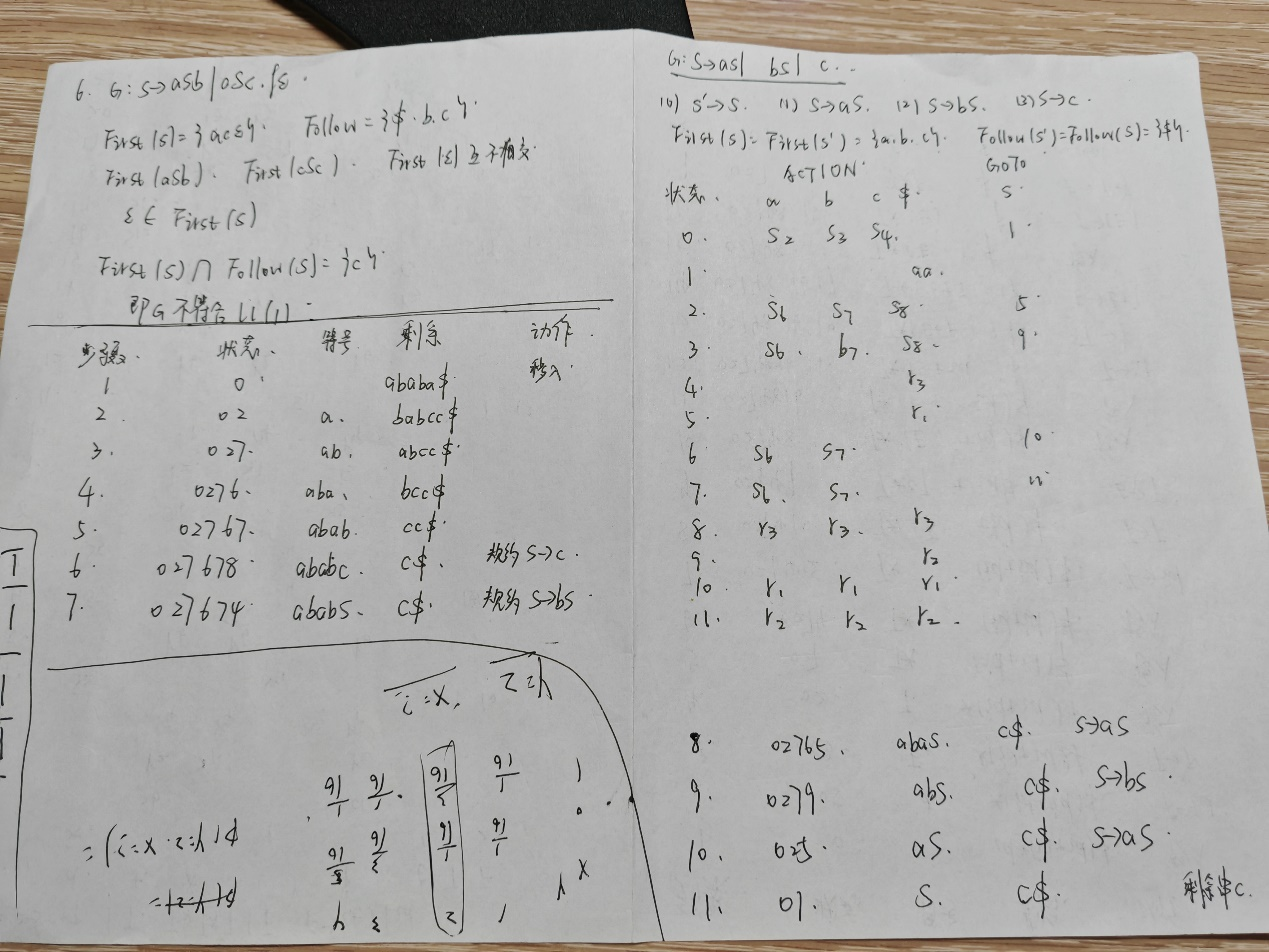 6. G: S→aSb|aSc.|ε.
First(S)={acε}. Follow={$.b.c}.
First(aSb). First(cSc). First(ε)互不相交.
ε∈First(S)
First(S)∩Follow(S)={c}.
即G不符合LL(1)
步骤. 状态. 符号 剩余 动作.
1 0 ababa$ 移入.
2. 02 a. babcc$
3. 027. ab. abcc$.
4. 0276. aba. bcc$
5. 02767. abab. cc$.
6. 027678. ababc. c$. 规约S→c.
7. 027674. ababS. c$. 规约S→bS
G: S→aS| bS| c..
(0) S'→S. (1) S→aS. (2) S→bS. (3) S→c.
First(S)=First(S')={a.b.c}. Follow(S')=Follow(S)={$}.
ACTION GOTO
状态. a b c $. S
0. S2 S3 S4. 1.
1 aa.
2. S6 S7 S8. 5.
3 S6. b7. S8. 9.
4. r3
5. r1.
6 S6 S7. 10.
7. S6. S7. 11
8. r3 r3. r3
9. r2
10. r1 r1 r1.
11. r2 r2 r2.
8. 02765. abaS. c$. S→aS
9. 0279. abS. c$. S→bS.
10. 025. aS. c$. S→aS.
11. 01 S. c$. 剩余串c.